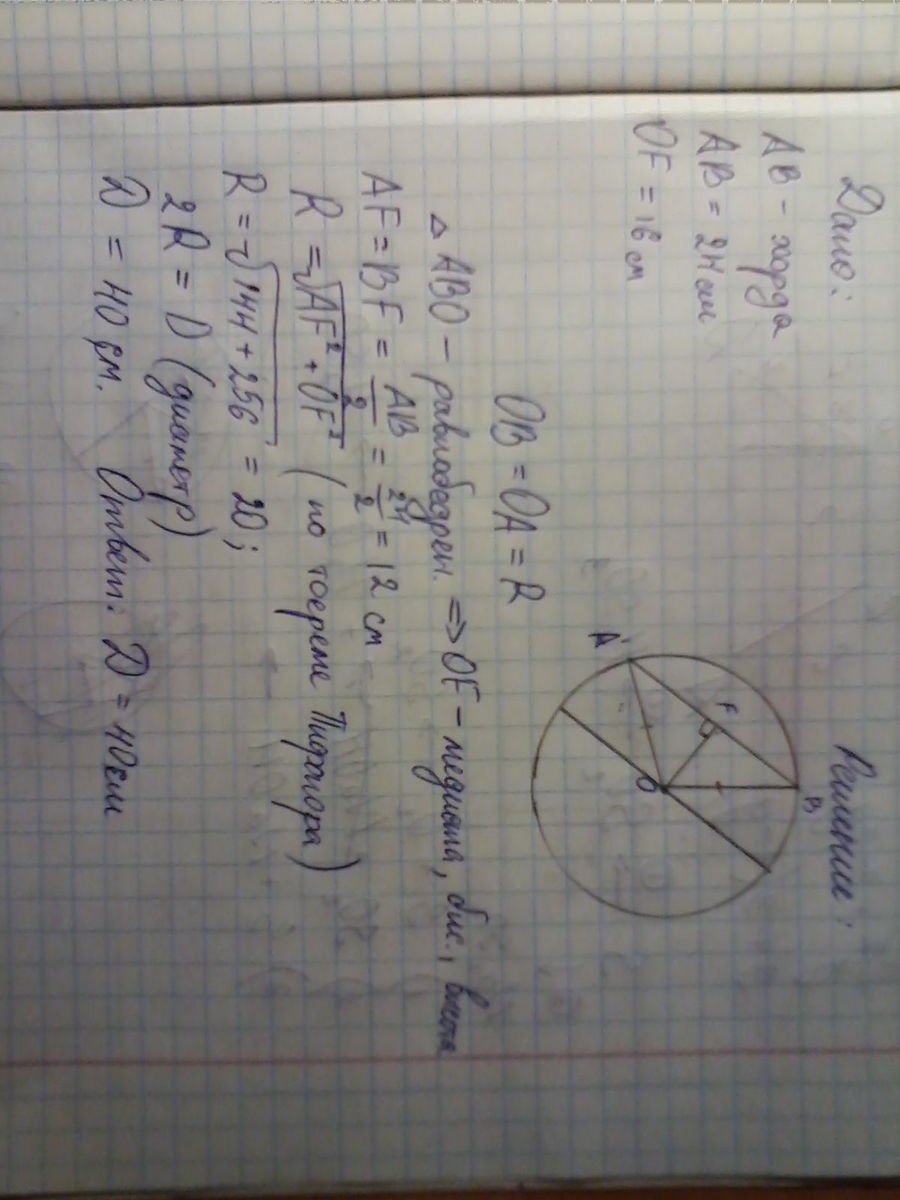 Дано:
AB - хорда
AB = 24 см
OF = 16 см
Решение:
B
F
A
O
OB = OA = R
△ ABO - равнобедрен. => OF - медиана, бис., высота
AF = BF = AB/2 = 24/2 = 12 см
R = √AF² + OF² (по теореме Пифагора)
R = √144 + 256 = 20;
2R = D (диаметр)
D = 40 см. Ответ: D = 40см